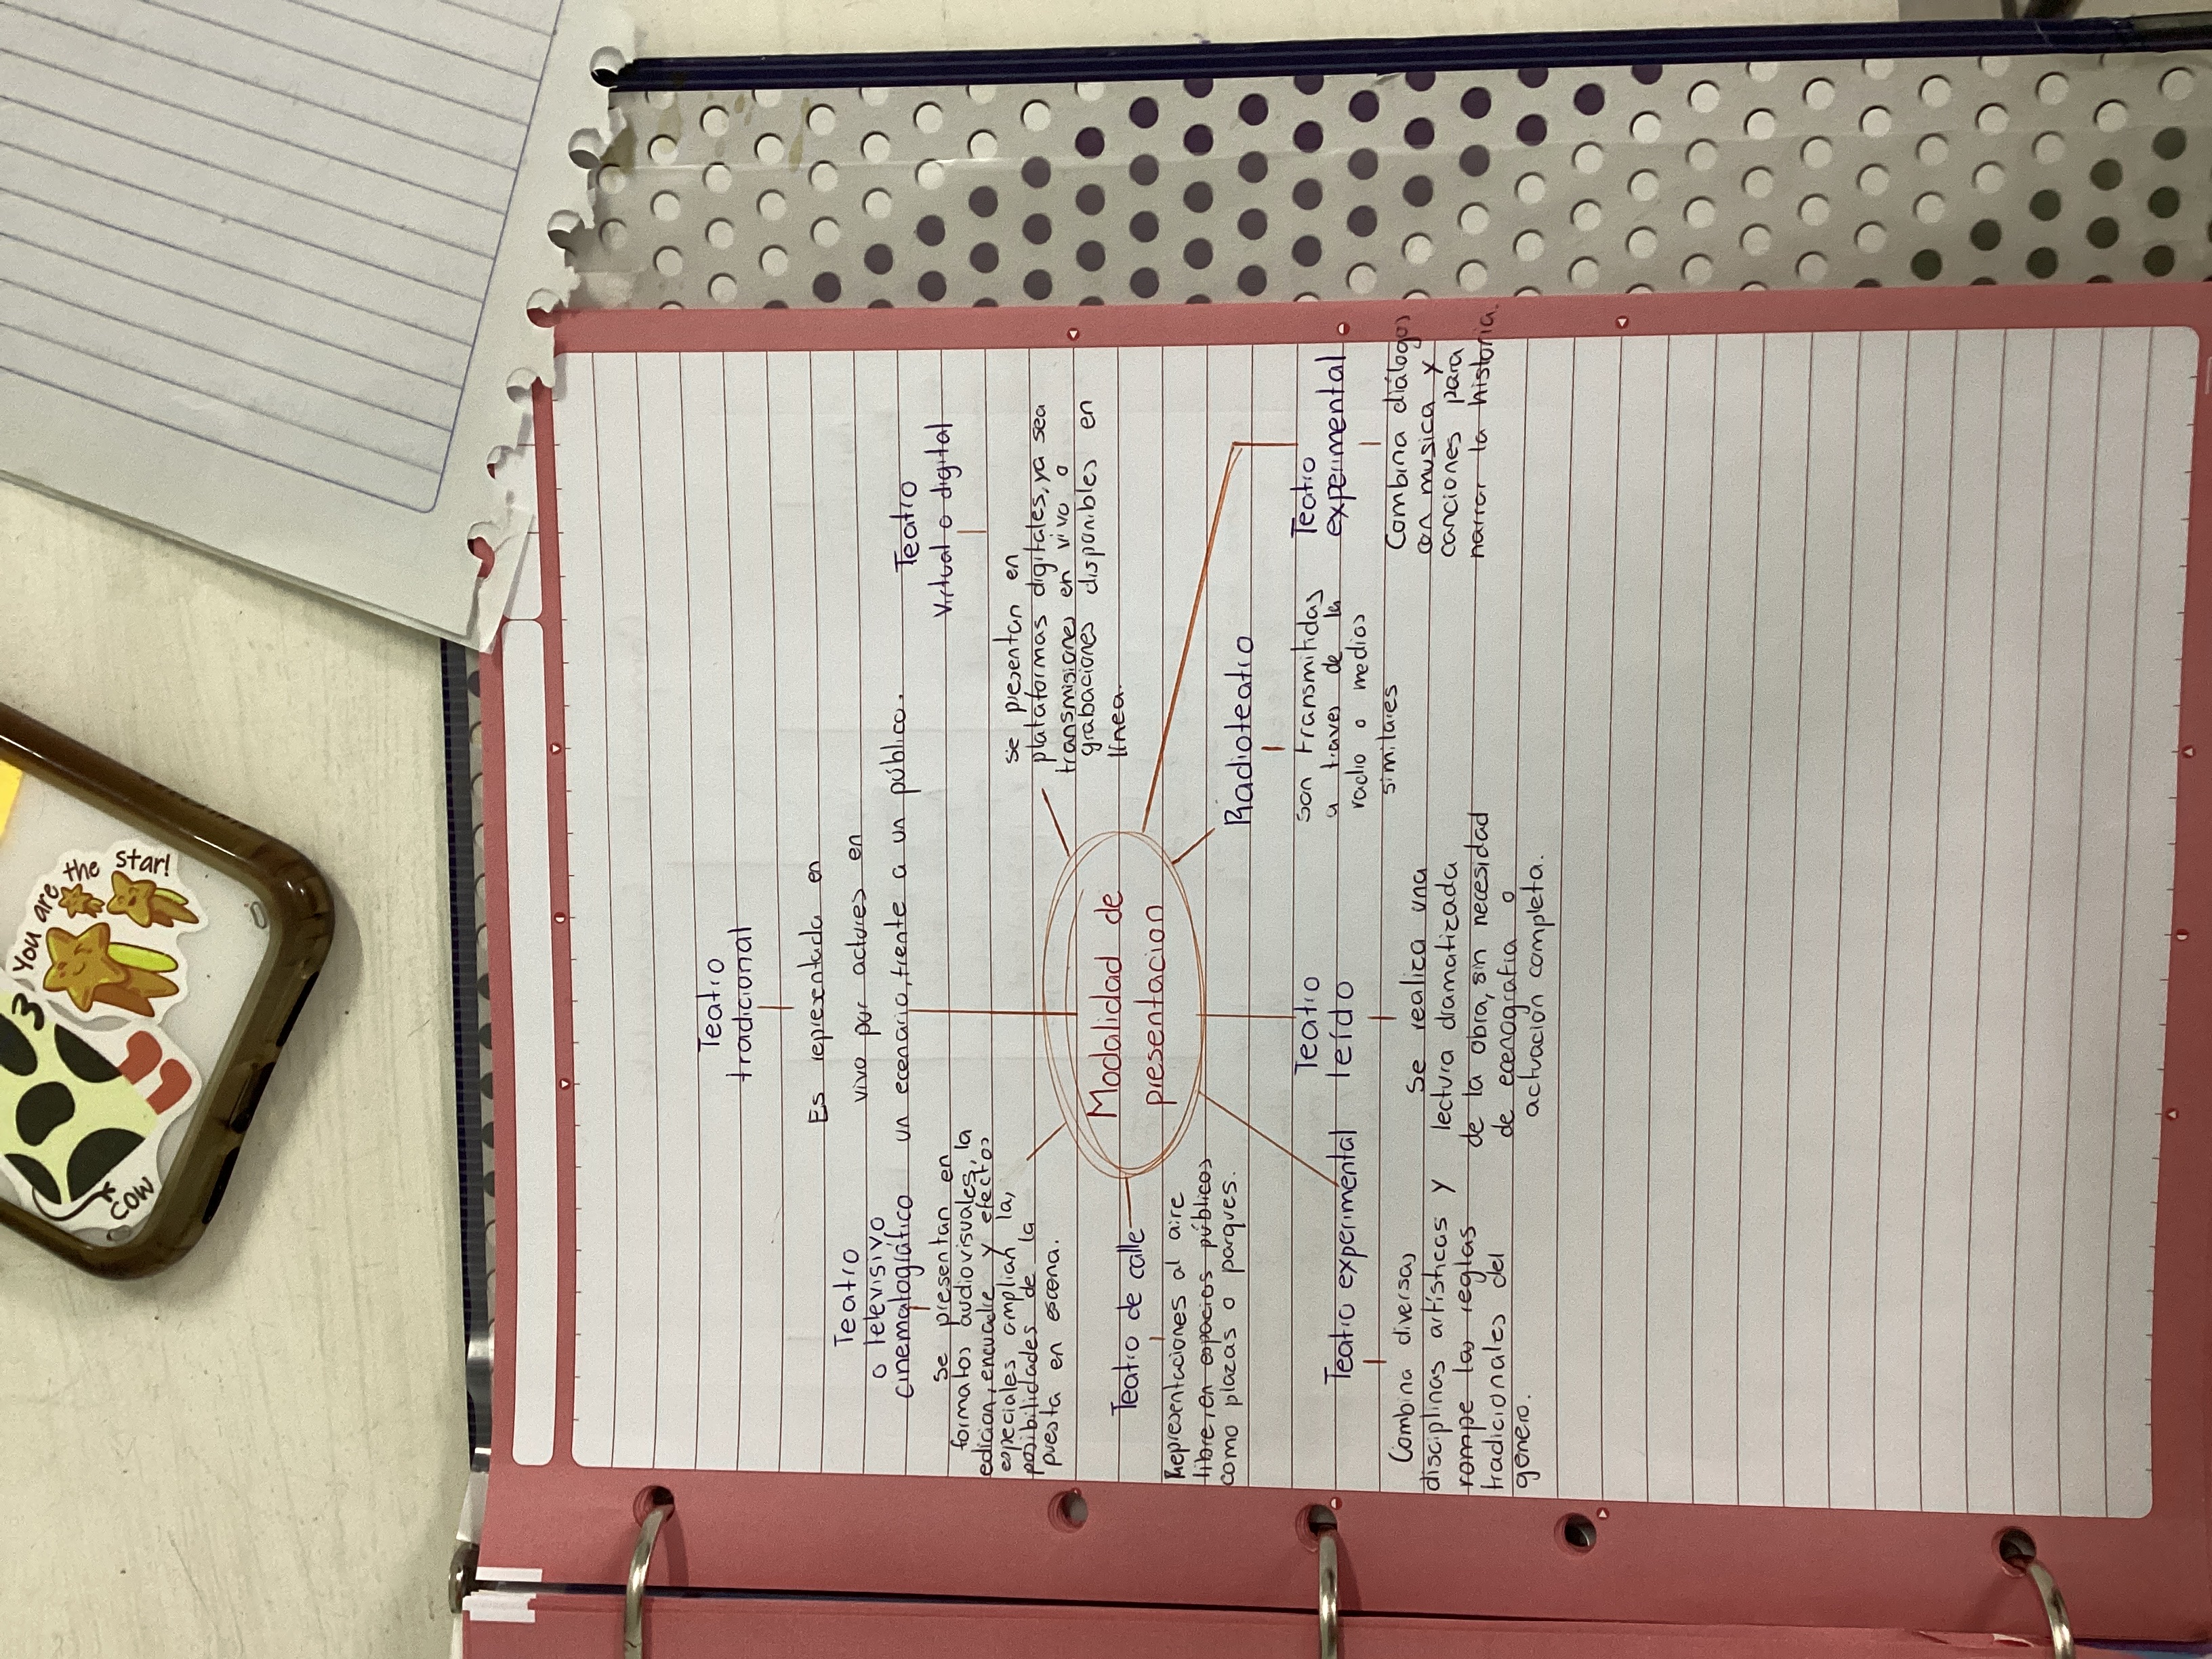 Teatro
tradicional
Es representada en
vivo por actores en
un ecenario, frente a un público.
Teatro
o televisivo
cinematográfico
Se presentan en
formatos audiovisuales, la
edicion, encuadre y efectos
especiales amplian la,
posibilidades de la
puesta en escena.
Teatro
Virtual o digital
se presentan en
plataformas digitales, ya sea
transmisiones en vivo o
grabaciones disponibles en
línea.
Modalidad de
presentacion
Teatro de calle
Representaciones al aire
libre, en espacios públicos
como plazas o parques.
Radioteatro
son transmitidas
a traves de la
radio o medios
similares
Teatro experimental
Combina diversas
disciplinas artísticas y
rompe las reglas
tradicionales del
genero.
Teatro
leído
Se realica una
lectura dramatizada
de la obra, sin necesidad
de ecenografia o
actuación completa.
Teatro
experimental
Combina diálogos
con musica y
canciones para
narrar la historia.
You are the star!
cow